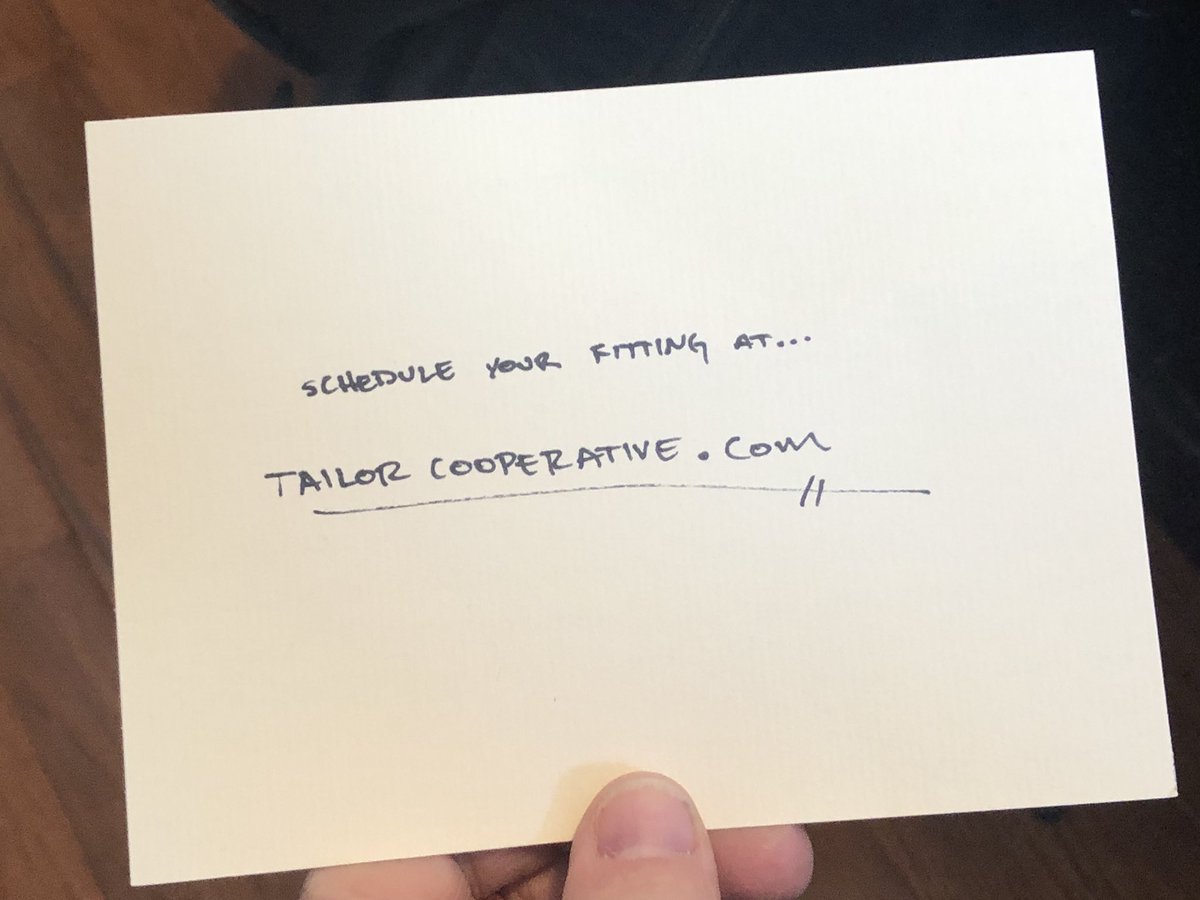 SCHEDULE YOUR FITTING AT...
TAILOR COOPERATIVE.COM